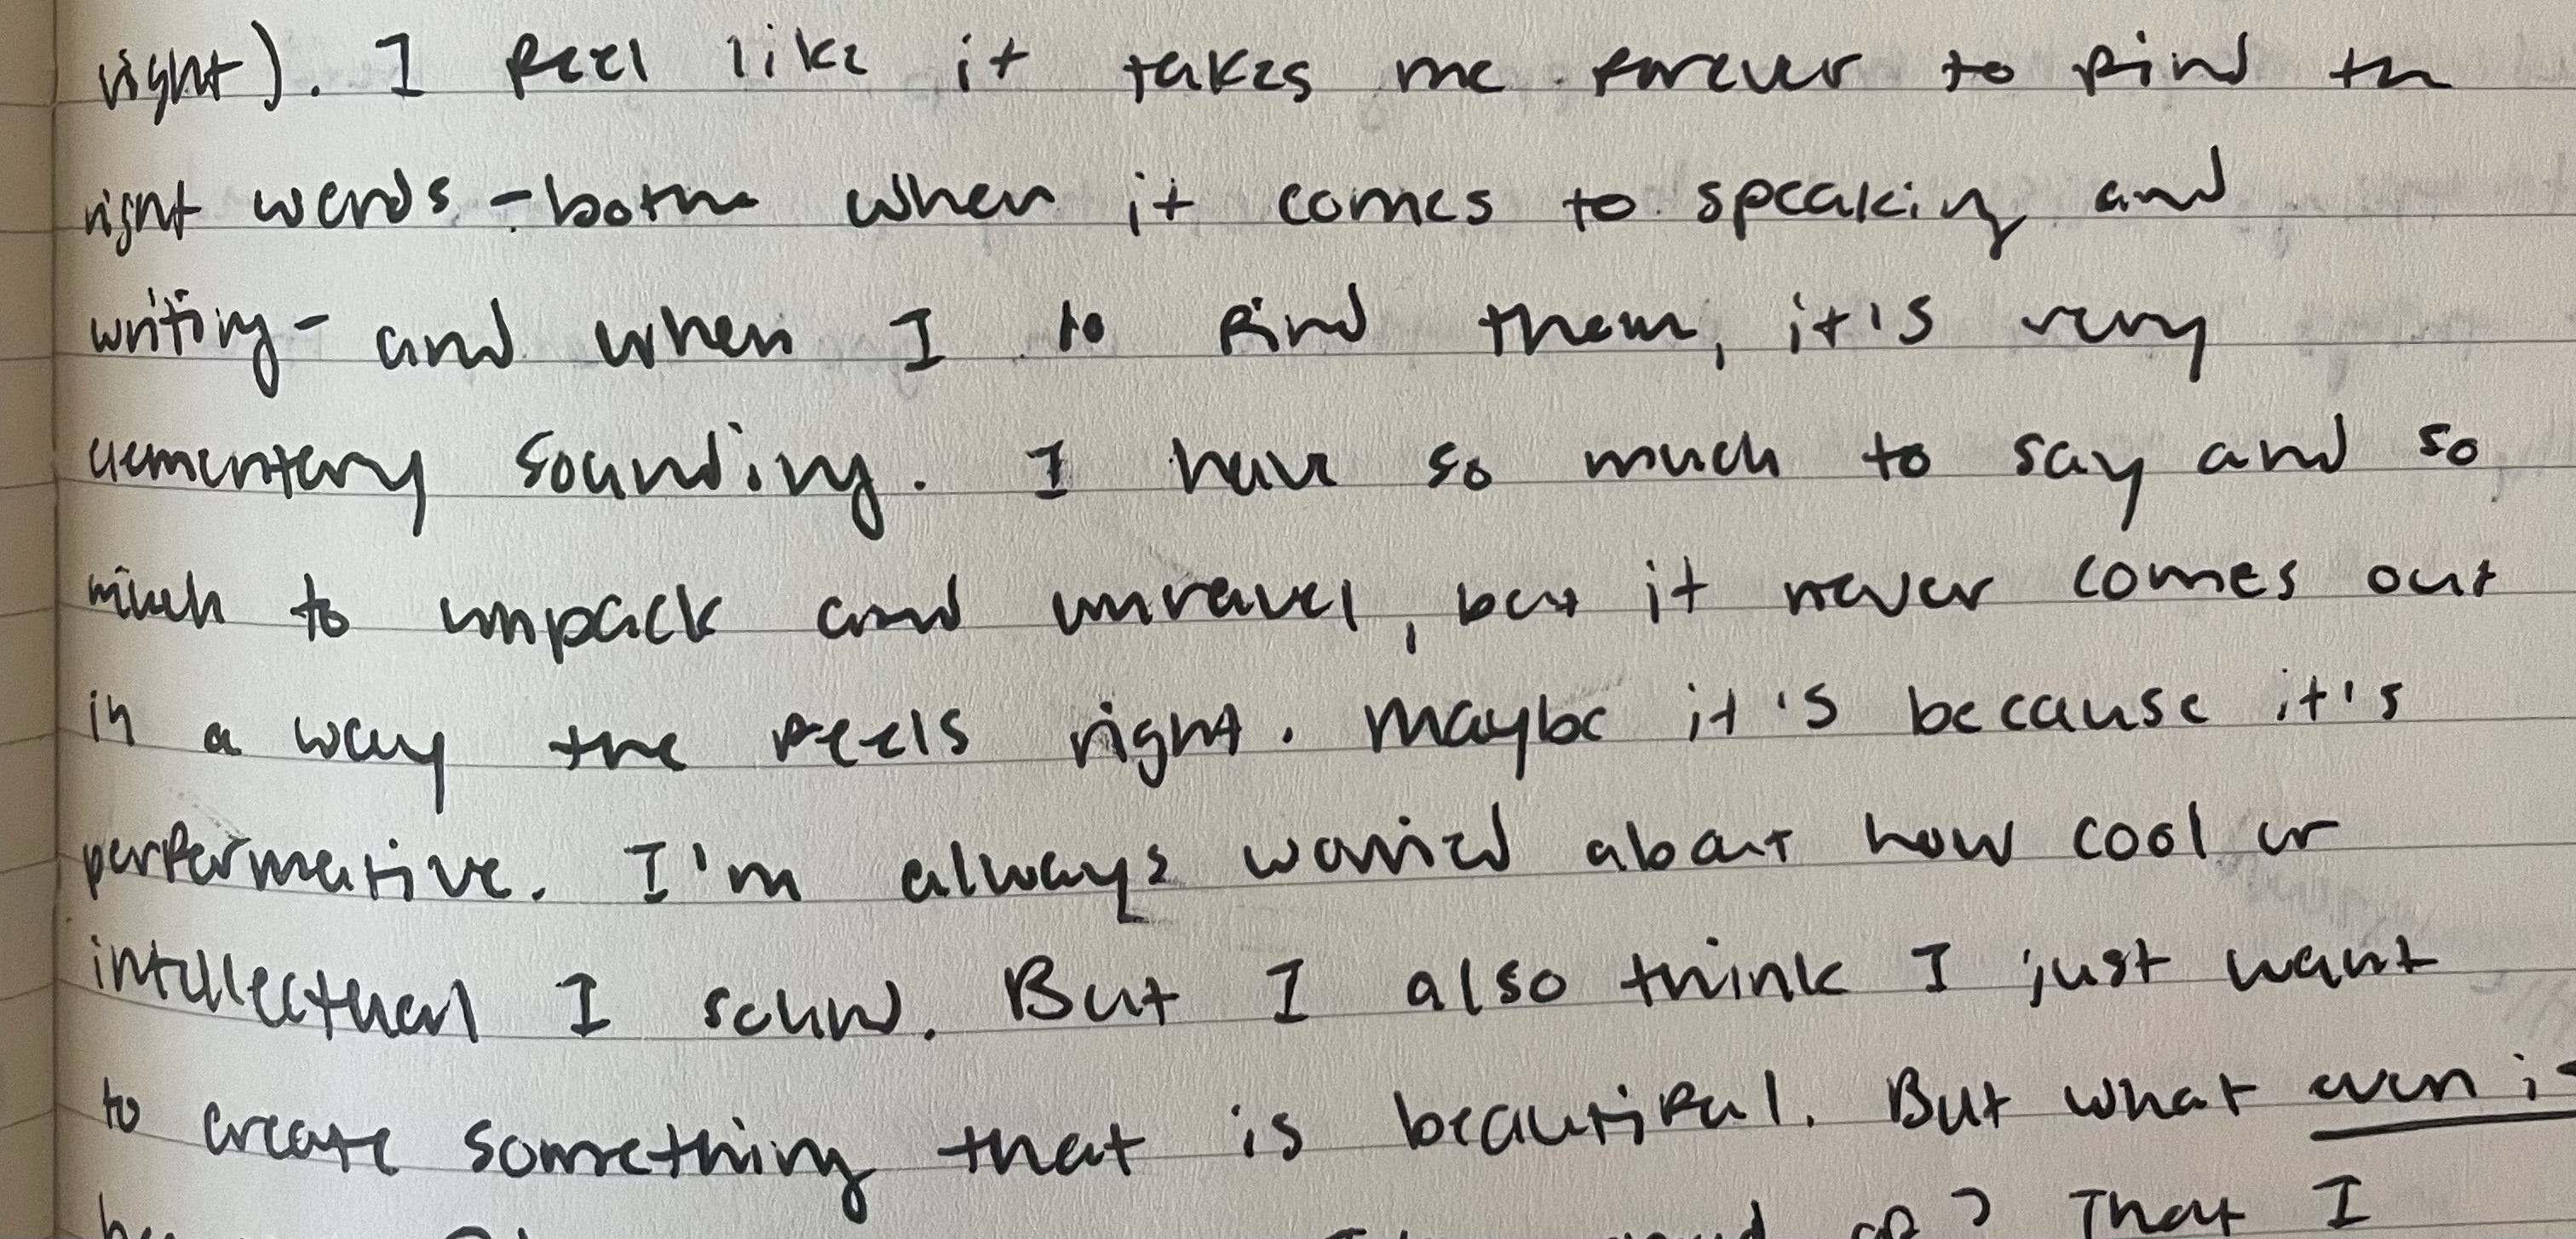 right). I feel like it takes me forever to find the
right words - both when it comes to speaking and
writing - and when I to find them, it's very
elementary sounding. I have so much to say and so
much to unpack and unravel, but it never comes out
in a way the feels right. Maybe it's because it's
performative. I'm always worried about how cool or
intellectual I sound. But I also think I just want
to create something that is beautiful. But what even is
of? That I